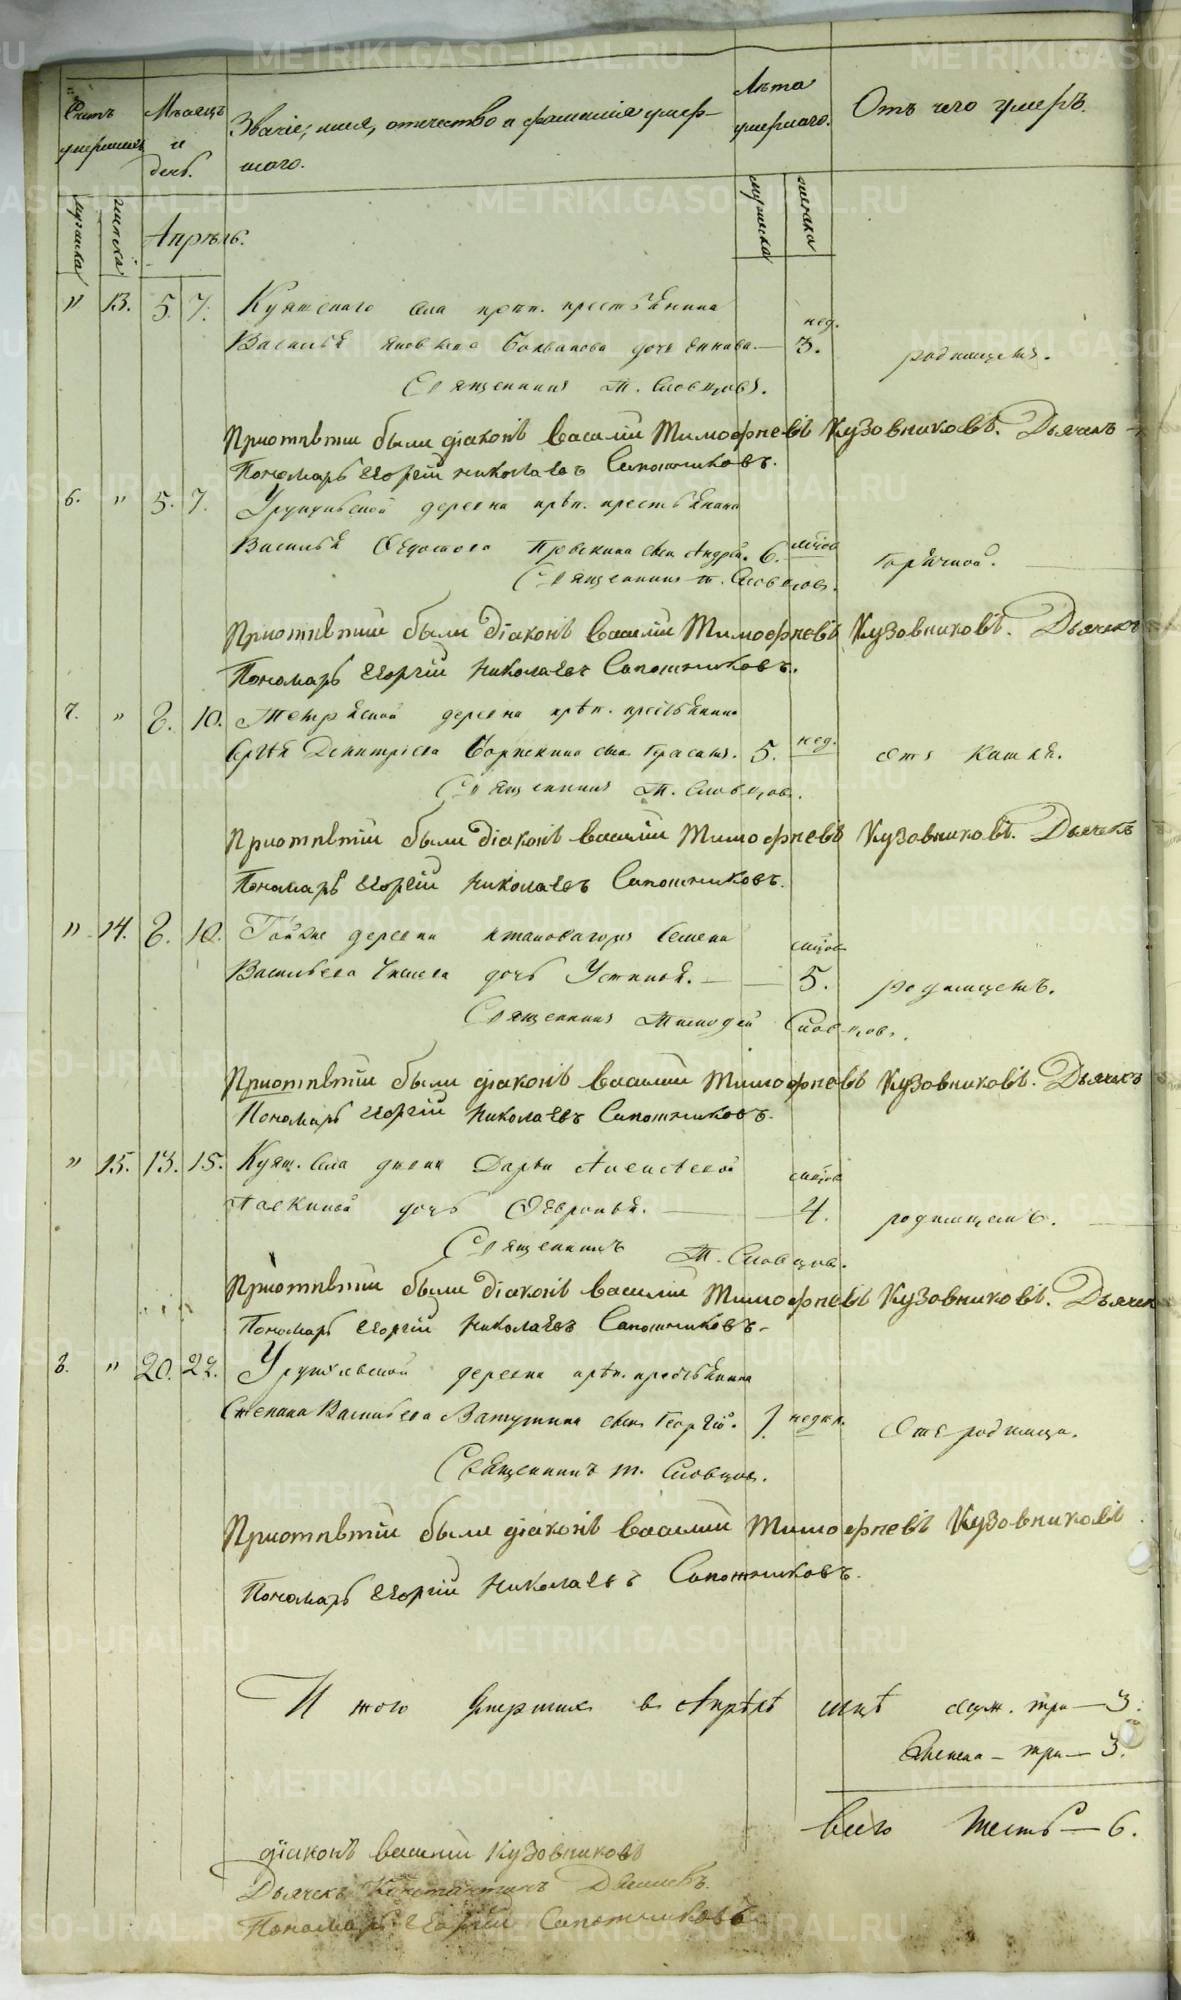 Счетъ умершихъ
Мѣсяцъ и день.
Званіе, имя, отчество и фамилія умер-
шаго.
Лѣта умершаго.
Отъ чего умеръ.
мужеска
женска
Апрѣль.
мужеска
женска
" 13. 5. 7. Куяшскаго села крѣп. крестьянина
нед.
Василья Яковлева дочь 3. родимцемъ.
Священникъ Т. Словцовъ.
При отпѣтіи были діаконъ Василій Тимофеевъ Кузовниковъ. Дьячекъ
Пономарь Георгій Николаевъ Сапожниковъ.
6. " 5. 7. деревни крѣп. крестьянина
Василья Федотова сынъ Андрей. 6. мѣсцов горячкой.
Священникъ Т. Словцовъ.
При отпѣтіи были діаконъ Василій Тимофеевъ Кузовниковъ. Дьячекъ
Пономарь Георгій Николаевъ Сапожниковъ.
7. " 8. 10. деревни крѣп. крестьянина
Димитріева сынъ Герасимъ. 5. нед. отъ кашля.
Священникъ Т. Словцовъ.
При отпѣтіи были діаконъ Василій Тимофеевъ Кузовниковъ. Дьячекъ
Пономарь Георгій Николаевъ Сапожниковъ.
" 14. 8. 10. деревни Семена
мѣсцов
Васильева дочь Устинья. 5. родимцемъ.
Священникъ Тимофей Словцовъ.
При отпѣтіи были діаконъ Василій Тимофеевъ Кузовниковъ. Дьячекъ
Пономарь Георгій Николаевъ Сапожниковъ.
" 15. 13. 15. Куяш. села дѣвки Дарьи Алексѣевой
мѣсцов
дочь Февронья. 4. родимцемъ.
Священникъ Т. Словцовъ.
При отпѣтіи были діаконъ Василій Тимофеевъ Кузовниковъ. Дьячек
Пономарь Георгій Николаевъ Сапожниковъ.
8. " 20. 22. деревни крѣп. крестьянина
Степана Васильева Ватутина сынъ Георгій. 1 недѣл. Отъ родимца.
Священникъ Т. Словцов.
При отпѣтіи были діаконъ Василій Тимофеевъ Кузовниковъ
Пономарь Георгій Николаевъ Сапожниковъ.
Итого умерших в Апрѣлѣ мцѣ муж. три — 3.
женска — три — 3.
Всего шесть — 6.
діаконъ Василій Кузовниковъ
Дьячекъ Константинъ
Пономарь Георгій Сапожниковъ
METRIKI.GASO-URAL.RU